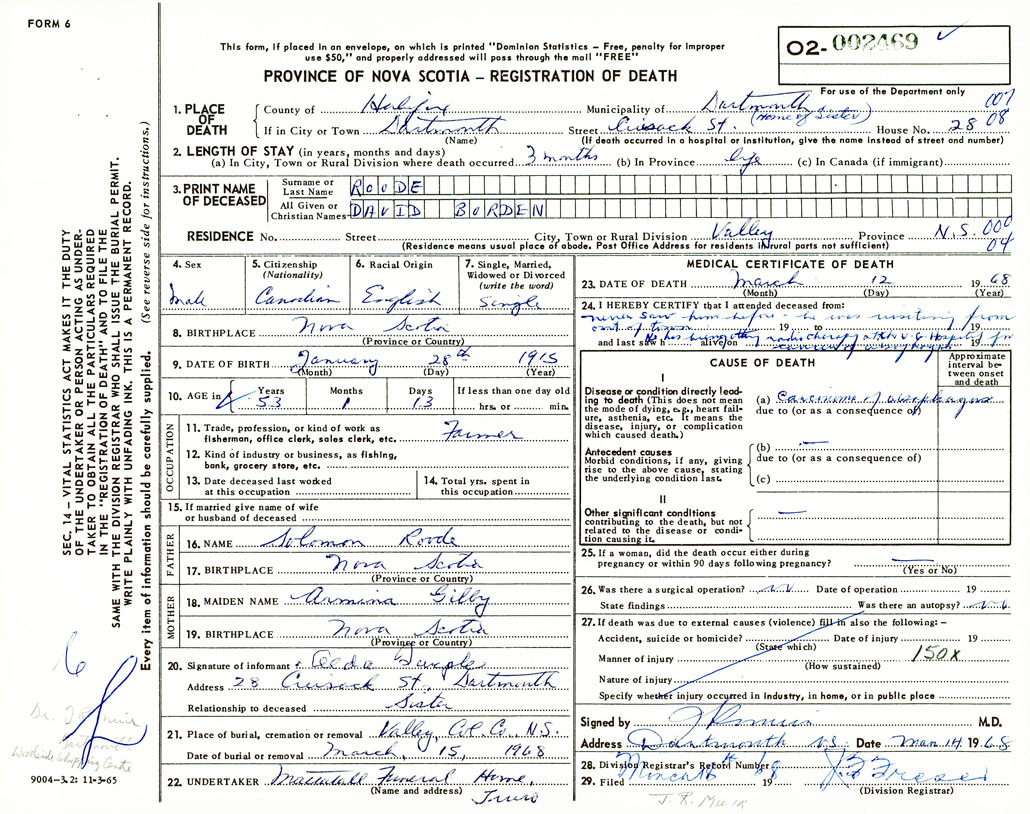 FORM 6
This form, if placed in an envelope, on which is printed "Dominion Statistics – Free, penalty for improper
use $50," and properly addressed will pass through the mail "FREE"
PROVINCE OF NOVA SCOTIA – REGISTRATION OF DEATH
02-002469
For use of the Department only
007
08
1. PLACE OF DEATH
County of Halifax Municipality of Dartmouth
(Home of Sister)
If in City or Town Dartmouth Street Cusack St. House No. 28
(Name) (If death occurred in a hospital or institution, give the name instead of street and number)
2. LENGTH OF STAY (in years, months and days)
(a) In City, Town or Rural Division where death occurred 3 months (b) In Province life (c) In Canada (if immigrant)
3. PRINT NAME OF DECEASED
Surname or Last Name ROODE
All Given or Christian Names DAVID BORDEN
RESIDENCE No. Street City, Town or Rural Division Valley Province N.S. 000
04
(Residence means usual place of abode. Post Office Address for residents in rural parts not sufficient)
4. Sex
male
5. Citizenship
(Nationality)
Canadian
6. Racial Origin
English
7. Single, Married,
Widowed or Divorced
(write the word)
Single
8. BIRTHPLACE Nova Scotia
(Province or Country)
9. DATE OF BIRTH January 28th 1915
(Month) (Day) (Year)
10. AGE in
Years 53
Months 1
Days 13
If less than one day old
hrs. or min.
OCCUPATION
11. Trade, profession, or kind of work as
fisherman, office clerk, sales clerk, etc. Farmer
12. Kind of industry or business, as fishing,
bank, grocery store, etc.
13. Date deceased last worked
at this occupation
14. Total yrs. spent in
this occupation
15. If married give name of wife
or husband of deceased
FATHER
16. NAME Solomon Roode
17. BIRTHPLACE Nova Scotia
(Province or Country)
MOTHER
18. MAIDEN NAME Armina Gilby
19. BIRTHPLACE Nova Scotia
(Province or Country)
20. Signature of informant
Address 28 Cuisack St., Dartmouth
Relationship to deceased Sister
21. Place of burial, cremation or removal Valley, Col. Co., N.S.
Date of burial or removal March, 15, 1968
22. UNDERTAKER Mattatall Funeral Home,
(Name and address) Truro
MEDICAL CERTIFICATE OF DEATH
23. DATE OF DEATH March 12 1968
(Month) (Day) (Year)
24. I HEREBY CERTIFY that I attended deceased from:
never saw him before – he was visiting from
out of town 19 to 19
and last saw h alive on 19
CAUSE OF DEATH
Approximate
interval be-
tween onset
and death
I
Disease or condition directly lead-
ing to death (This does not mean
the mode of dying, e.g., heart fail-
ure, asthenia, etc. It means the
disease, injury, or complication
which caused death.)
(a) Carcinoma of oesophagus
due to (or as a consequence of)
Antecedent causes
Morbid conditions, if any, giving
rise to the above cause, stating
the underlying condition last.
(b) —
due to (or as a consequence of)
(c)
II
Other significant conditions
contributing to the death, but not
related to the disease or condi-
tion causing it.
—
25. If a woman, did the death occur either during
pregnancy or within 90 days following pregnancy? —
(Yes or No)
26. Was there a surgical operation? Date of operation 19
State findings Was there an autopsy?
27. If death was due to external causes (violence) fill in also the following: –
Accident, suicide or homicide? Date of injury 19
(State which)
Manner of injury 150X
(How sustained)
Nature of injury
Specify whether injury occurred in industry, in home, or in public place
Signed by M.D.
Address Dartmouth N.S. Date Mar 14 1968
28. Division Registrar's Record Number
29. Filed 19
(Division Registrar)
J. R. Muir
SEC. 14 – VITAL STATISTICS ACT MAKES IT THE DUTY
OF THE UNDERTAKER OR PERSON ACTING AS UNDER-
TAKER TO OBTAIN ALL THE PARTICULARS REQUIRED
IN THE "REGISTRATION OF DEATH" AND TO FILE THE
SAME WITH THE DIVISION REGISTRAR WHO SHALL ISSUE THE BURIAL PERMIT.
WRITE PLAINLY WITH UNFADING INK. THIS IS A PERMANENT RECORD.
Every item of information should be carefully supplied. (See reverse side for instructions.)
Dr. J R Muir
Dartmouth
Woodside Shopping Centre
9004–3.2: 11-3-65